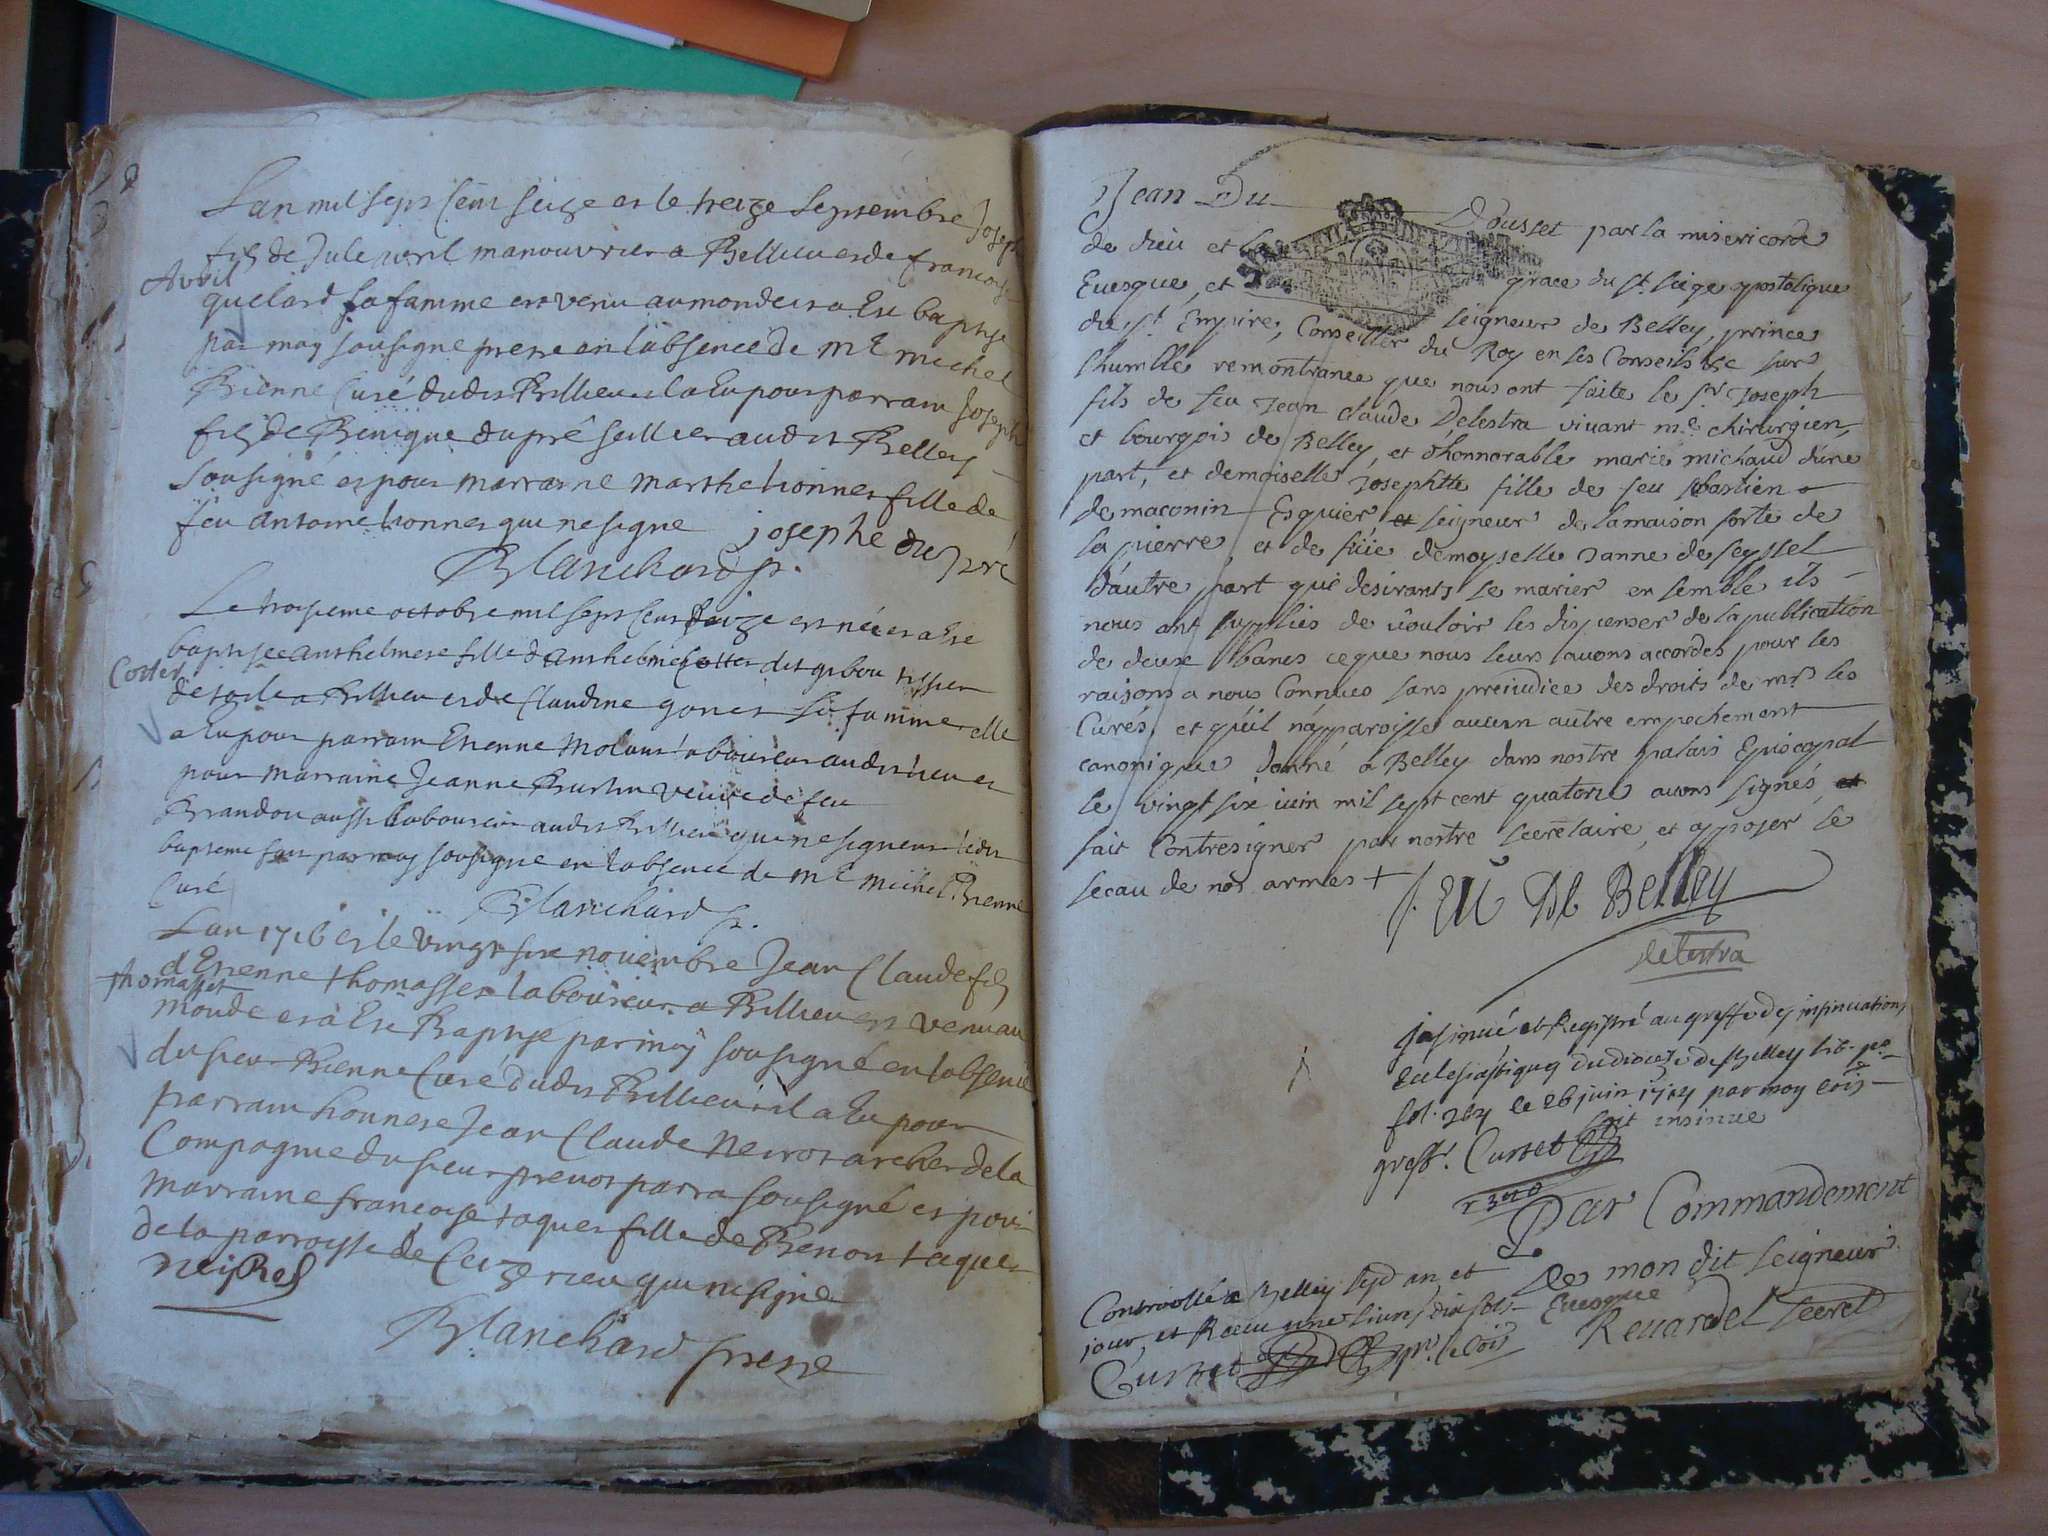 Lan mil sept cent seize et le treize septembre Joseph
fils de Jule avril manouvrier a Billieu et de francoise
Avril
quelard sa famme est venu au monde et a Esté baptisé
par moy sousigné pretre en l'absence de Mre michel
Bienne Curé dudit Billieu il a Eu pour parrain Joseph
fils de Benigne dupré sellier audit Belley
sousigné et pour marraine marthe honnet fille de
feu antoine honnet qui ne signe josephe du pré
Blanchard p.
Le troisieme octobre mil sept cent seize est née et a Esté
baptisée anthelmete fille d'anthelme Cottet dit gibou tissier
Cottet
de toile a Billieu et de Claudine gonet sa famme elle
a Eu pour parrain Etienne Molani laboureur audit lieu et
pour marraine Jeanne Burtin veuve de feu
Brandon aussi laboureur audit Billieu qui ne signent ledit
bapteme fait par moy sousigné en l'absence de Mre Michel Bienne
Curé
Blanchard p.
Lan 1716 et le vingt sixe novembre Jean Claude fils
d'Etienne thomasset laboureur a Billieu est venu au
thomasset
monde et a Esté Baptisé par moy sousigné en l'absence
du sieur Bienne Curé dudit Billieu il a Eu pour
parrain honnete Jean Claude Neirot archer de la
Compagnie du sieur prevot parra sousigné et pour
marraine francoise taquet fille de Benoit taquet
de la parroisse de Ceizerieu qui ne signe
neiret
Blanchard pretre
Jean Du Dousset par la misericorde
de dieu et la grace du st. siege apostolique
Evesque, et seigneur de Belley, prince
du st. Empire, Conseiller du Roy en ses Conseils &c sur
l'humble remontrance que nous ont faite le sr. Joseph
fils de feu Jean claude Delestra vivant me. chirurgien,
et bourgois de Belley, et d'honnorable marie michaud d'une
part, et demoiselle Josephtte fille de feu sebastien
de maconin Esquier et seigneur de la maison forte de
la pierre et de füe demoyselle Janne de seyssel
d'autre part que desirants se marier en semble ils
nous ont supplies de vouloir les dispenser de la publication
de deux bancs ce que nous leurs avons accordes pour les
raisons a nous connues sans prejudice des droits de mrs les
Curés, et qu'il n'apparoisse aucun autre empechement
canonique donné a Belley dans nostre palais Episcopal
le vingt six iuin mil sept cent quatorze avons signés et
fait Contresigner par nostre secretaire, et apposer le
secau de nos armes +
J. EV. DE Belley
delestra
Insinué et Registré au greffe des insinuations
Eclesiastiques du dioceze de Belley lib. po
fol. 264 le 26 juin 1714 par moy cois
greff. Cursset soit insinue
Par Commandement
De mon dit seigneur
Evesque
Revardel secret
Controollé a Belley lesd an et
jour, et Receu une livre dix sols
Cursset pr. le cois